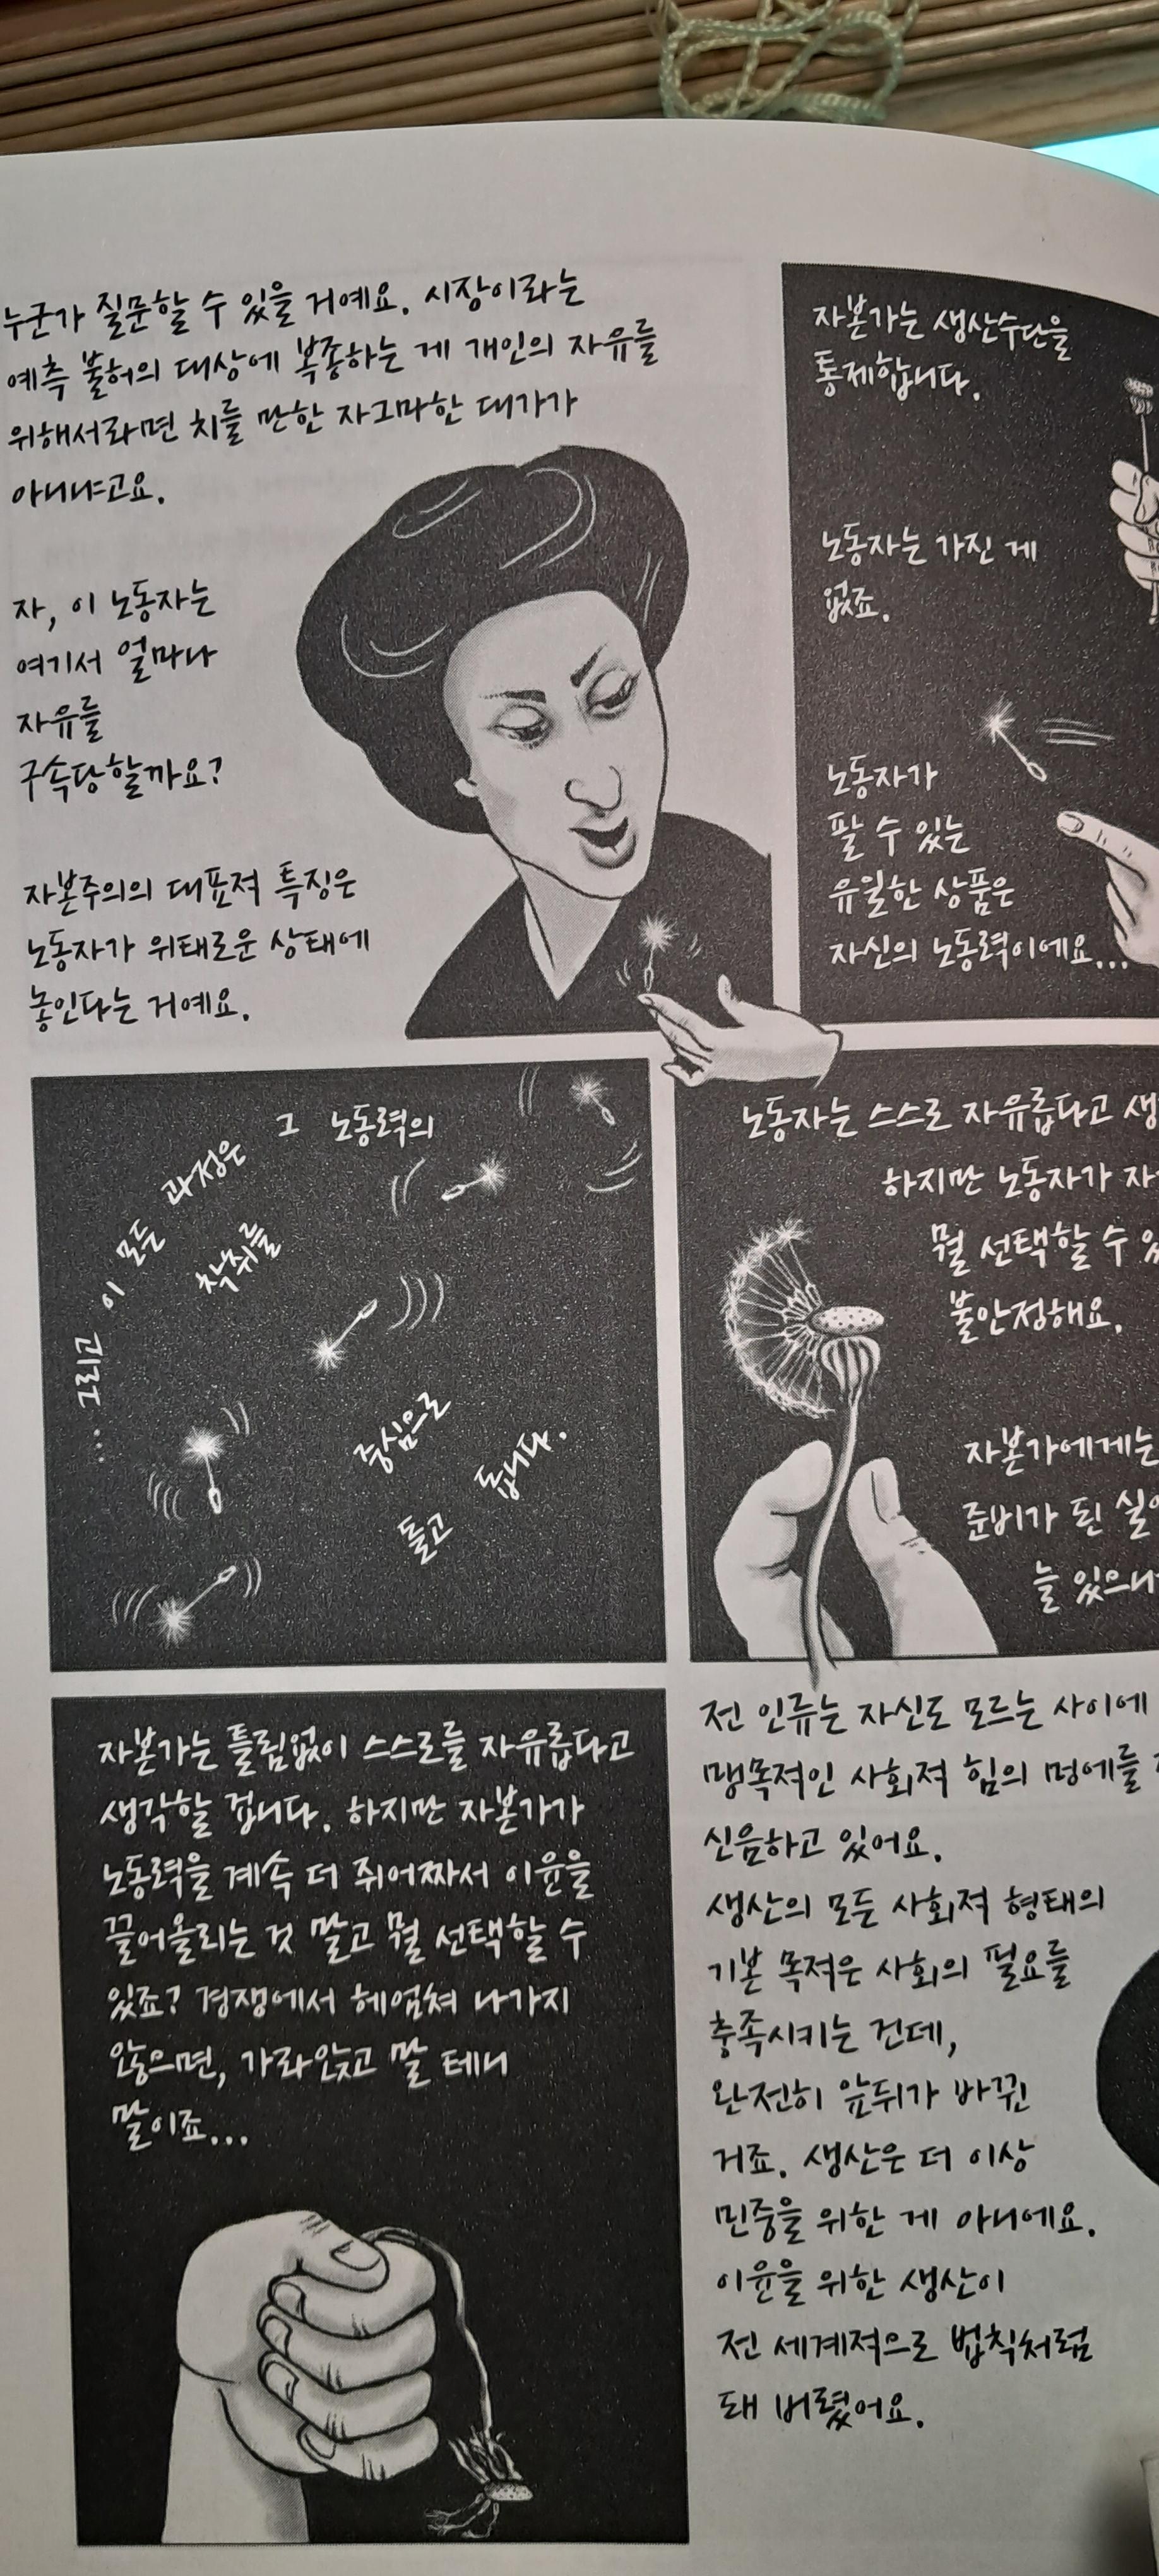 누군가 질문할 수 있을 거예요. 시장이라는
예측 불허의 대상에 복종하는 게 개인의 자유를
위해서라면 치를 만한 자그마한 대가가
아니냐고요.
자, 이 노동자는
여기서 얼마나
자유를
구속당할까요?
자본주의의 대표적 특징은
노동자가 위태로운 상태에
놓인다는 거예요.
자본가는 생산수단을
통제합니다.
노동자는 가진 게
없죠.
노동자가
팔 수 있는
유일한 상품은
자신의 노동력이에요...
그리고... 이 모든 과정은 그 노동력의
착취를
중심으로
돌고
돕니다.
노동자는 스스로 자유롭다고
하지만 노동자가
뭘 선택할 수
불안정해요.
자본가에게는
준비가 된
늘
자본가는 틀림없이 스스로를 자유롭다고
생각할 겁니다. 하지만 자본가가
노동력을 계속 더 쥐어짜서 이윤을
끌어올리는 것 말고 뭘 선택할 수
있죠? 경쟁에서 헤엄쳐 나가지
않으면, 가라앉고 말 테니
말이죠...
전 인류는 자신도 모르는 사이에
맹목적인 사회적 힘의 멍에를
신음하고 있어요.
생산의 모든 사회적 형태의
기본 목적은 사회의 필요를
충족시키는 건데,
완전히 앞뒤가 바뀐
거죠. 생산은 더 이상
민중을 위한 게 아니에요.
이윤을 위한 생산이
전 세계적으로 법칙처럼
돼 버렸어요.